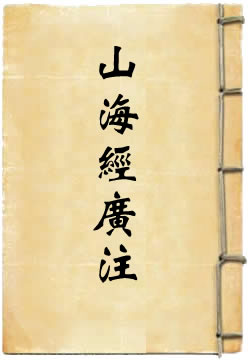 山海經廣注